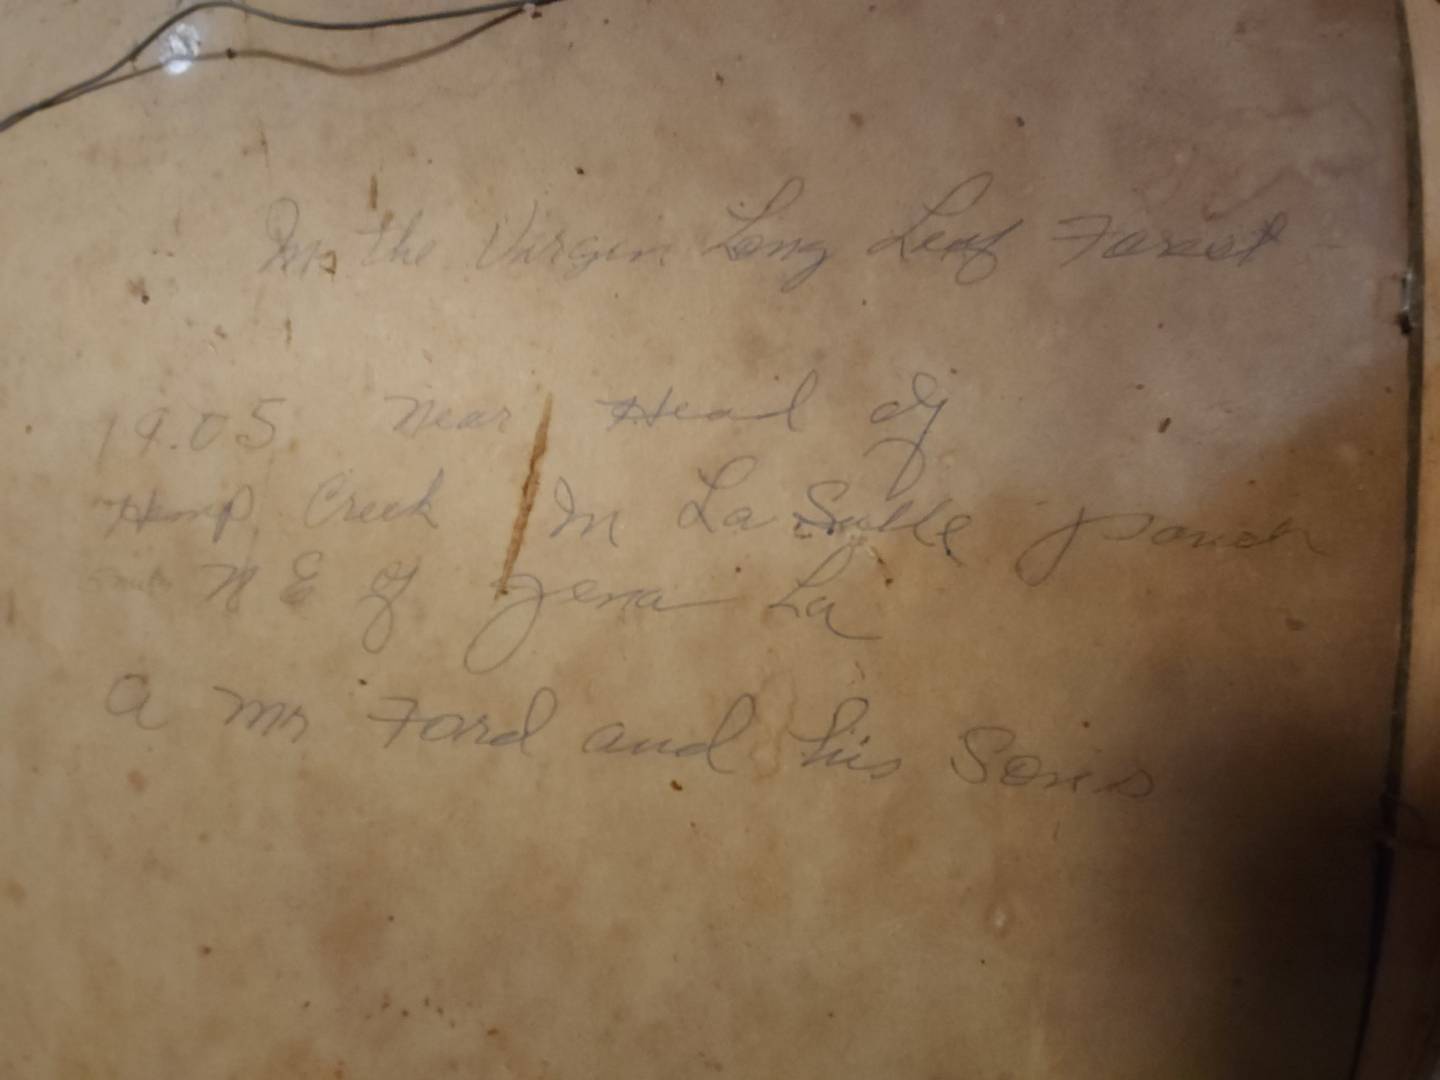 In the Virgin Long Leaf Forest
19.05 Near Head of
Hemp Creek In La Salle parish
N E of Jena La
a Mr Ford and his Sons